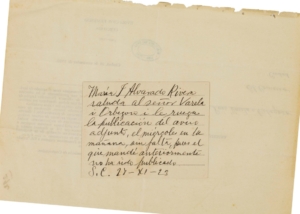 María J. Alvarado Rivera
saluda al señor Varela
i Orbegoso i le ruega
la publicacion del aviso
adjunto, el miércoles en la
mañana, sin falta, pues el
que mandé anteriormente
no ha sido publicado.
S/C. 27-XI-23